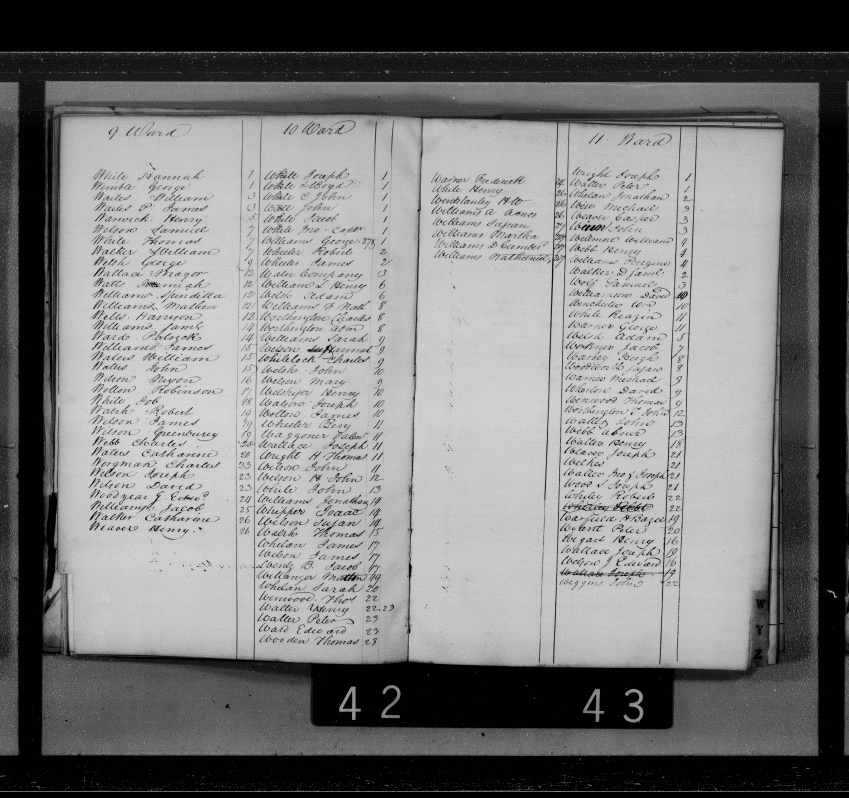 9 Ward
White Hannah 1
Wimble George 1
Wailes William 3
Wailes P James 3
Warwick Henry 5
Wilson Samuel 7
White Thomas 7
Walker William 7
Welsh George 9
Wallace Pragor 12
Watts 12
Williams Spindilla 12
Williams Mathew 12
Wells Hanyon 12
Williams James 14
Ward Patrick 14
Williams James 15
Wales William 15
Wales John 15
Wilson Nixon 16
Wolton Robinson 17
White Job 18
Walsh Robert 19
Wilson James 19
Wilson Greenbury 19
Webb Charles 20
Waters Catharine 20
Wergman Charles 23
Wilson Joseph 23
Wilson David 23
Woodyear G Edwd 24
Williams Jacob 25
Walker Catharine 26
Weaver Henry 26
10 Ward
White Joseph 1
White L Boyd 1
White C John 1
White John 1
White Jacob 1
White Jno Caper 1
Williams George
Wheeler Robert 2
Wheeler James 2
Water Company 3
William L Henry 6
Welsh Adam 6
Williams F Nath 8
Worthington Charles 8
Worthington Adm 8
Williams Sarah 9
Wilson Hannah 9
Whitelock Charles 9
Welsh John 10
Wilson Mary 9
Welsheyer Henry 10
Watson Joseph 10
Wolton James 10
Wheeler Benj 11
Waggoner 11
Wallace Joseph 11
Wright H Thomas 11
Wilson John 11
Wilson H John 12
White John 13
Williams Jonathan 14
Whipper Isaac 14
Wilson Susan 14
Walsh Thomas 15
Whelan James 17
Wilson James 17
Wentz B. Jacob 17
Willanger Martin 19
Whelan Sarah 20
Winwood Thos 22
Walter Henry 22.23
Walter Peter 23
Ward Edward 23
Wooden Thomas 23
Warner Frederick 24
White Henry
Winkianley H W 26
Williams A Agnes 26
Williams Susan 27
Williams Martha 27
Williams D Cumber 27
Williams Nathaniel 27
11 Ward
Wright Joseph 1
Walter Peter 1
Whelan Jonathan 2
Wier Michael 3
Weaver Casper 3
John 3
Wellmore William 4
Webb Henry 4
Williams Peregine 4
Walker D James 2
Wolf Samuel 3
Williamson David 10
Winchester Wm 10
White Reazin 11
Warner George 11
Welsh Adam 5
Wortner Jacob 7
Warner Hugh 8
Woodworth Susan 8
Warner Michael 9
Whelon David 9
Wenwood Thomas 9
Worthington T John 12
Waltes John 13
Webb Abner 13
Walter Henry 18
Weaver Joseph 21
Wilkes 21
Walter Jno J Joseph 21
Wood S Joseph 21
Whitey Robert 22
22
Warfield H Bazel 19
Wyant Peter 20
Wegart Henry 16
Wallace Joseph 19
Wilson J Edward 16
Wallace Joseph 19
Wiggins John 22
W
Y
Z
42
43